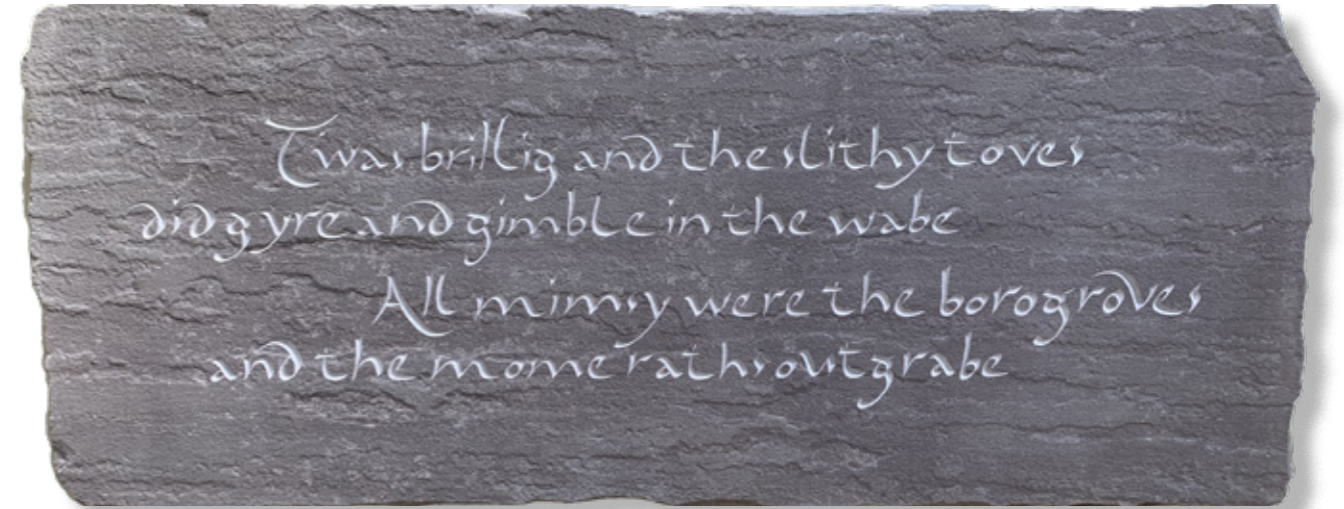 Twas brillig and the slithy toves
did gyre and gimble in the wabe
All mimsy were the borogroves
and the mome raths outgrabe